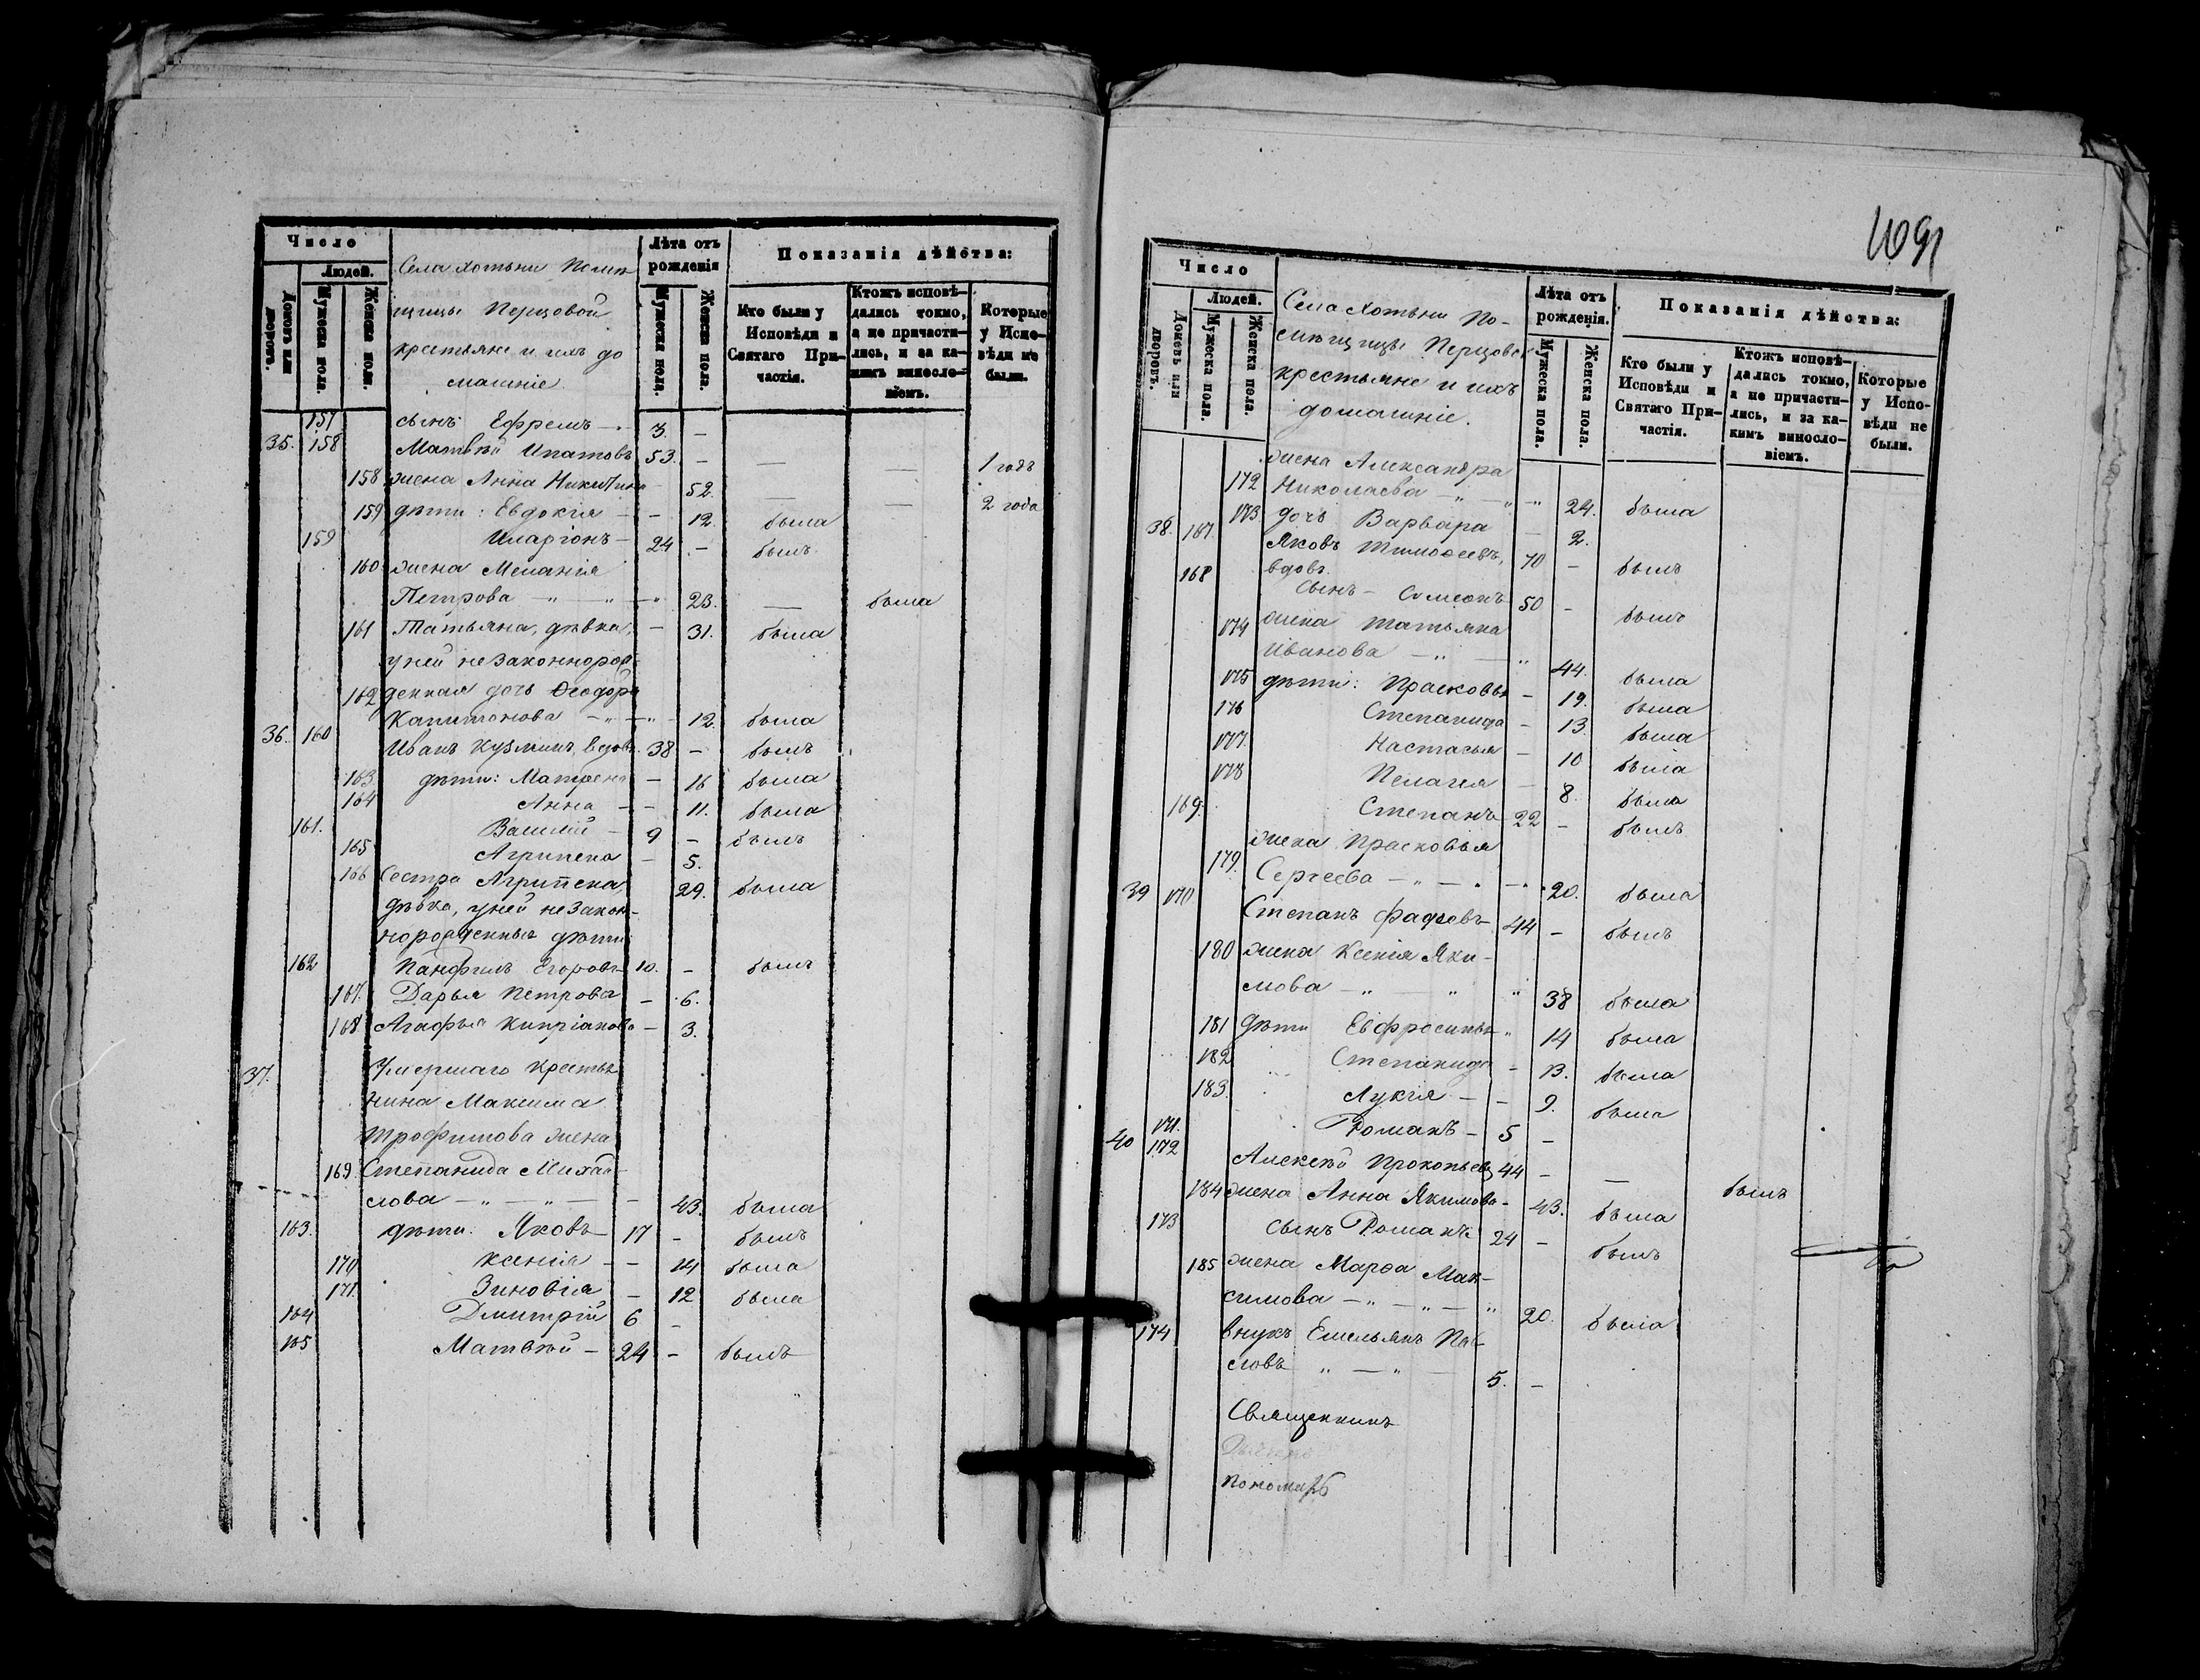 Число
Людей.
Домовъ или дворовъ.
Мужеска пола.
Женска пола.
Села Хотыни Помѣ-
щицы Перцовой
крестьяне и ихъ до
машніе.
Лѣта отъ рожденія
Мужеска пола.
Женска пола.
Показанія дѣйства:
Кто были у Исповѣди и Святаго При-частія.
Ктожъ исповѣ-дались токмо, а не причасти-лись, и за ка-кимъ винословіемъ.
Которые у Испо-вѣди не были.
157 сынъ Ефремъ 3. —
35. 158 Матвѣй Ипатовъ 53. — — — 1 годъ
158 жена Анна Никитина 52. — — 2 года
159 дѣти: Евдокія — 12. была
159 Иларіонъ — 24 — былъ
160 жена Меланія
Петрова — " — " — " 23. — была
161 Татьяна, дѣвка, — 31. была
у ней незаконнорож
162 денная дочь Ѳеодора
Капитонова — " — " 12. была
36. 160 Иванъ Кузминъ, вдовъ 38 — былъ
163 дѣти: Матрена — 16 была
164 Анна — — 11. была
161. Василій — 9 — былъ
165 Агрипена — 5.
166 Сестра Агрипена, 29. была
дѣвка, у ней незакон-
норожденныя дѣти
162 Панфилъ Егоровъ 10. — былъ
167. Дарья Петрова — 6.
168 Агафья Кипріанова — 3.
37. Умершаго крестья
нина Максима
Трофимова жена
169 Степанида Михай
лова — " — " — — 43. была
163. дѣти. Яковъ 17 — былъ
170 Ксенія — — 14 была
171. Зиновія — 12 была
164 Дмитрій 6 —
165 Матвѣй — 24 — былъ
Число
Людей.
Домовъ или дворовъ.
Мужеска пола.
Женска пола.
Села Хотыни По-
мѣщицы Перцовой
крестьяне и ихъ
домашніе.
Лѣта отъ рожденія.
Мужеска пола.
Женска пола.
Показанія дѣйства:
Кто были у Исповѣди и Святаго При-частія.
Ктожъ исповѣ-дались токмо, а не причасти-лись, и за ка-кимъ винословіемъ.
Которые у Испо-вѣди не были.
жена Александра
172 Николаева — " — " — " 24. была
173 дочь Варвара — 2.
38. 167. Яковъ Тимоѳеевъ, 70 — былъ
вдовъ.
168 Сынъ — Симеонъ 50 — былъ
жена Татьяна
174 Иванова — " — " 44. была
175 дѣти: Прасковья — 19. была
176 Степанида — 13. была
177. Настасья — 10 была
178 Пелагея — 8. была
169. Степанъ 22 — былъ
жена Прасковья
179. Сергеева — " — . — " 20. была
39 170 Степанъ Фадѣевъ 44 — былъ
180 жена Ксенія Яки-
мова — " " " 38 была
181 дѣти Евфросинья " 14 была
182 Степанида — 13. была
183. Лукія — — 9. была
171. Романъ — 5 —
40 172 Алексѣй Прокопьевъ 44 — — былъ
184 жена Анна Якимова — 43. была
173 сынъ Романъ 24 — былъ
185 жена Марѳа Мак-
симова — " — " — " 20. была
174 внукъ Емельянъ Пав-
ловъ " — " 5. —
Священникъ
Пономарь